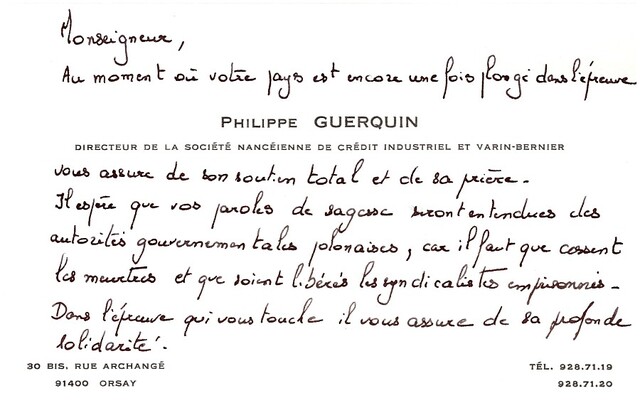 Monseigneur,
Au moment où votre pays est encore une fois plongé dans l'épreuve
PHILIPPE GUERQUIN
DIRECTEUR DE LA SOCIÉTÉ NANCÉIENNE DE CRÉDIT INDUSTRIEL ET VARIN-BERNIER
vous assure de son soutien total et de sa prière.
Il espère que vos paroles de sagesse seront entendues des
autorités gouvernementales polonaises, car il faut que cessent
les meurtres et que soient libérés les syndicalistes emprisonnés.
Dans l'épreuve qui vous touche il vous assure de sa profonde
solidarité.
30 BIS, RUE ARCHANGÉ
91400 ORSAY
TÉL. 928.71.19
928.71.20